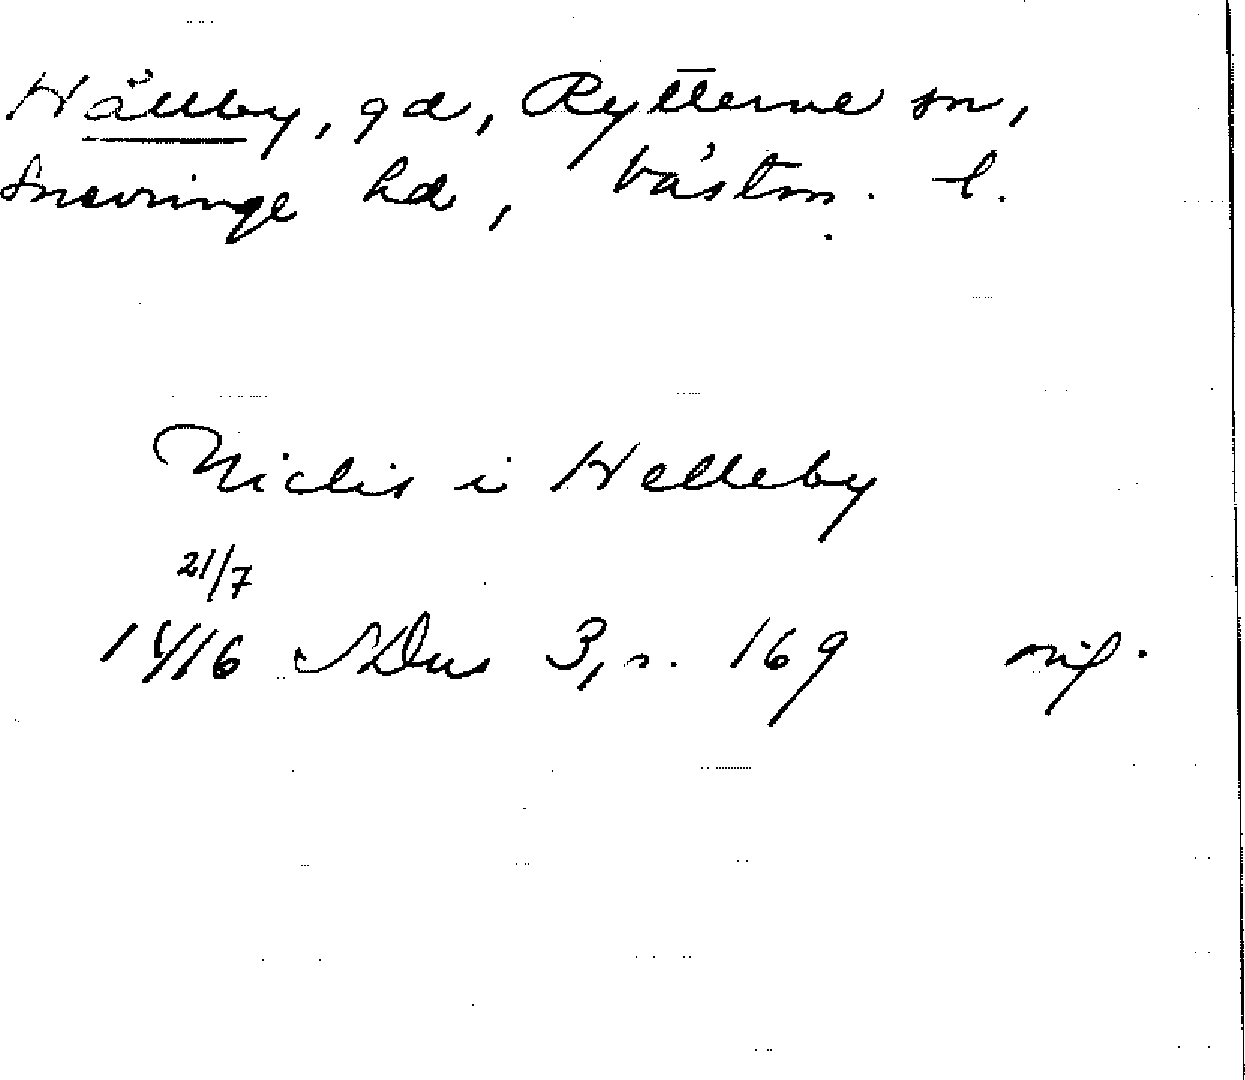 Hällby, gd, Rytterne sn,
Snevringe hd, Västm. l.
Niclis i Helleby
21/7
1416 SDns 3, s. 169 orig.